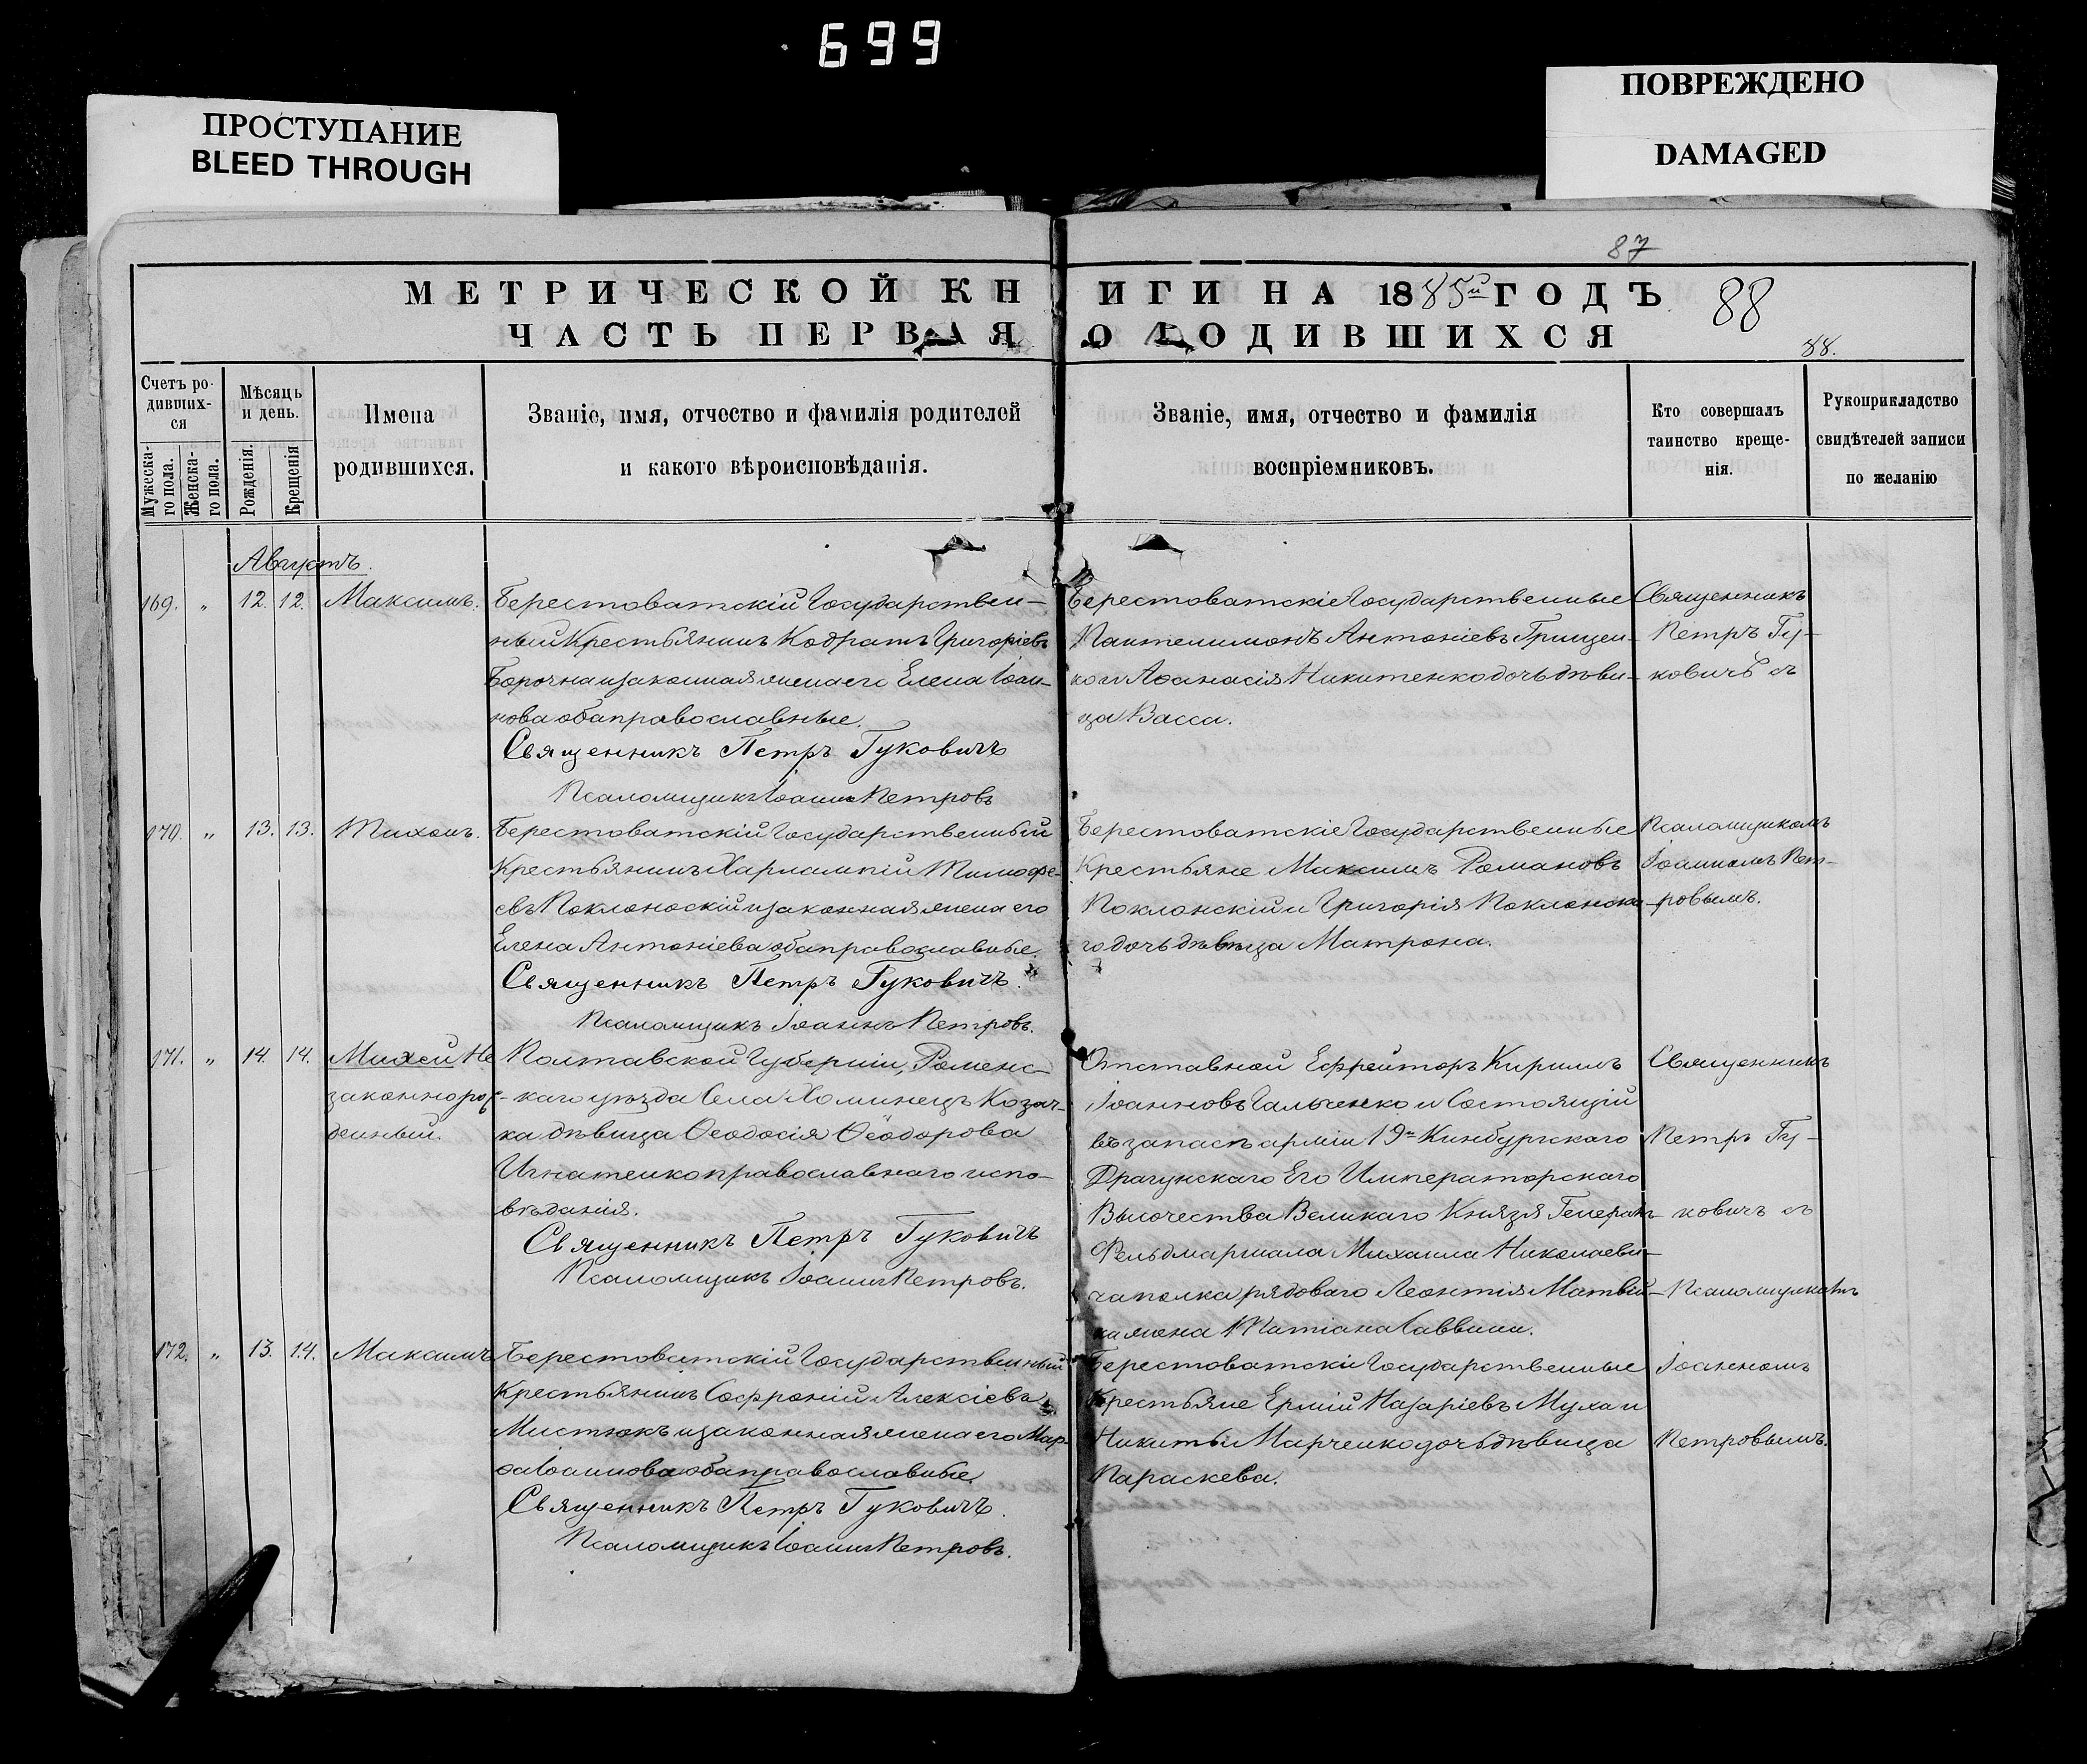 699
ПРОСТУПАНИЕ
BLEED THROUGH
ПОВРЕЖДЕНО
DAMAGED
87
МЕТРИЧЕСКОЙ КНИГИ НА 1885й ГОДЪ
88
ЧАСТЬ ПЕРВАЯ О РОДИВШИХСЯ
88.
Счетъ ро-
дивших-
ся
Мужеска-
го пола.
Женска-
го пола.
Мѣсяцъ
и день.
Рожденія.
Крещенія
Имена
родившихся.
Званіе, имя, отчество и фамилія родителей
и какого вѣроисповѣданія.
Званіе, имя, отчество и фамилія
воспріемниковъ.
Кто совершалъ
таинство креще-
нія.
Рукоприкладство
свидѣтелей записи
по желанію
Августъ.
169. " 12. 12. Максимъ.
Берестоватскій Государствен-
ный Крестьянинъ Кодратъ Григоріевъ
и законная жена его Елена Іоан-
нова оба православные.
Священникъ Петръ Гуковичъ
Псаломщикъ Іоаннъ Петровъ
Берестоватскіе Государственные
Пантелимонъ Антоніевъ Грицен-
ко и Аѳанасія Никитенко дочь дѣви-
ца Васса.
Священникъ
Петръ Гу-
ковичъ съ
170. " 13. 13. Тихонъ.
Берестоватскій Государственный
Крестьянинъ Харлампій Тимофе-
евъ Поклоноскій и законная жена его
Елена Антоніева оба православные.
Священникъ Петръ Гуковичъ.
Псаломщикъ Іоаннъ Петровъ.
Берестоватскіе Государственные
Крестьяне Максимъ Романовъ
Поклонскій и Григорія Поклонска-
го дочь дѣвица Матрона.
Псаломщикомъ
Іоанномъ Пет-
ровымъ.
171. " 14. 14. Михей Не
законнорож-
денный.
Полтавской Губерніи, Роменс-
каго уѣзда Села Хоминецъ Козач-
ка дѣвица Ѳеодосія Ѳеодорова
Игнатенко православнаго испо-
вѣданія.
Священникъ Петръ Гуковичъ
Псаломщикъ Іоаннъ Петровъ.
Отставной Ефрейторъ Кириллъ
Іоанновъ Гальченко и Состоящій
въ запасѣ арміи 19го Кинбургскаго
Драгунскаго Его Императорскаго
Высочества Великаго Князя Генералъ-
Фельдмаршала Михаила Николаеви-
ча полка рядоваго Леонтія Матвій-
ка жена Татіана Саввина.
Священникъ
Петръ Гу-
ковичъ съ
Псаломщикомъ
Іоанномъ
Петровымъ.
172. " 13. 14. Максимъ
Берестоватскій Государственный
Крестьянинъ Софроній Алексіевъ
Мистюкъ и законная жена его Мар-
ѳа Іоаннова оба православные.
Священникъ Петръ Гуковичъ.
Псаломщикъ Іоаннъ Петровъ.
Берестоватскіе Государственные
Крестьяне Ермій Назаріевъ Муха и
Никиты Марченко дочь дѣвица
Параскева.